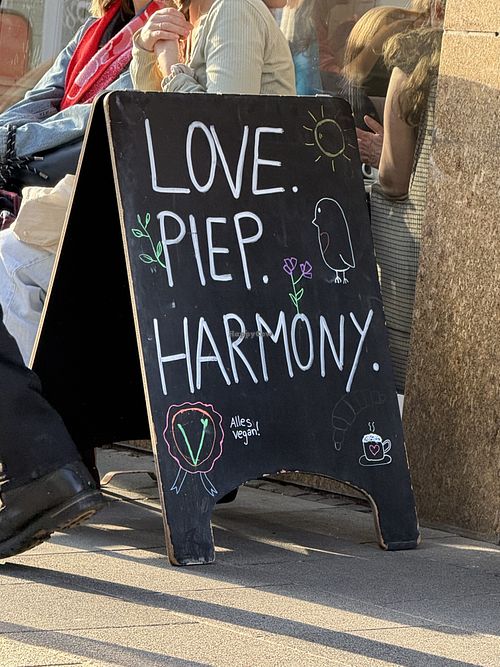 LOVE.
PIEP.
HARMONY.
V
Alles
vegan!